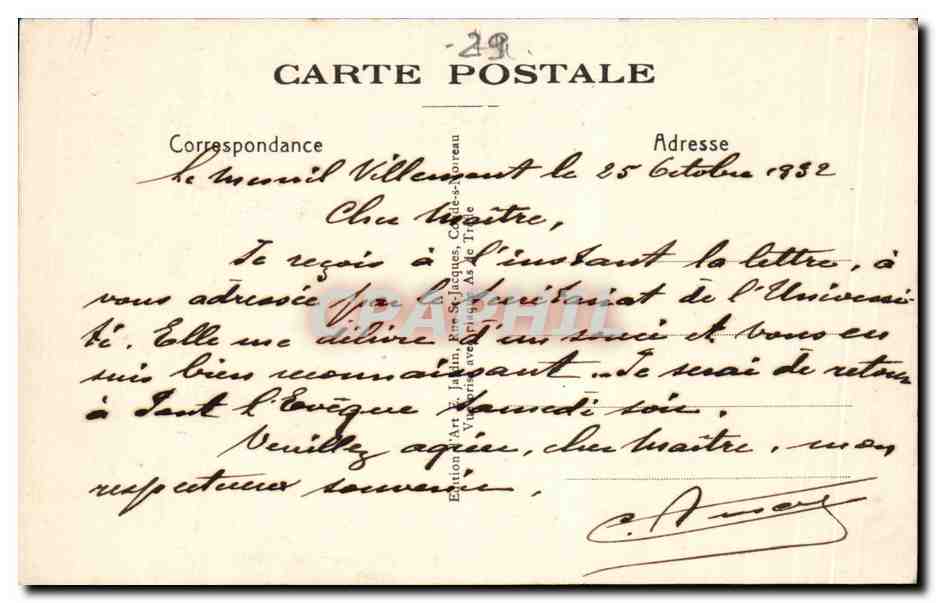 29
CARTE POSTALE
Correspondance
Adresse
Le Mesnil Villement le 25 Octobre 1932
Cher Maître,
Je reçois à l'instant la lettre, à
vous adressée par le Secrétariat de l'Universi-
té. Elle me délivre d'un souci et vous en
suis bien reconnaissant. Je serai de retour
à Pont l'Evêque samedi soir.
Veuillez agréer, cher Maître, mon
respectueux souvenir.
C.
Edition d'Art E. Jardin, Rue St-Jacques, Condé-s-Noireau
Vue prise avec Plaque As de Trèfle
CPAPHIL